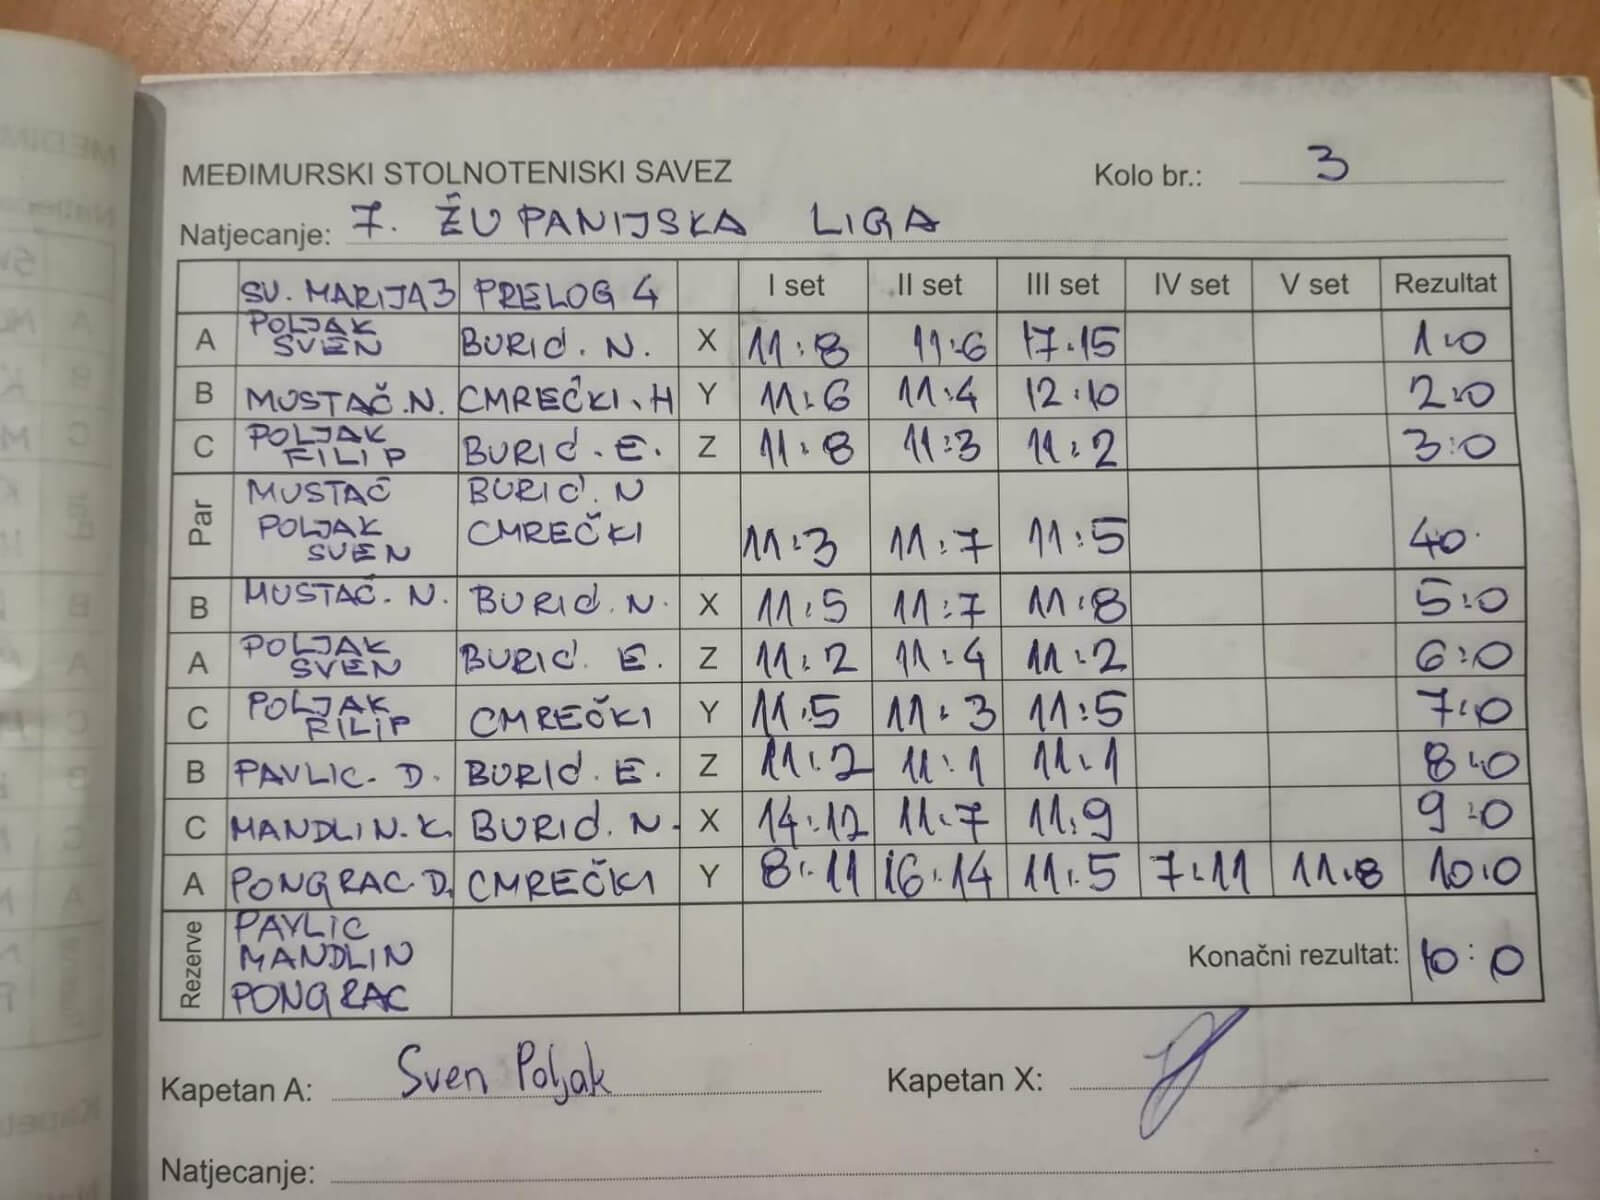 MEĐIMURSKI STOLNOTENISKI SAVEZ Kolo br.: 3
Natjecanje: 7. ŽUPANIJSKA LIGA
SV. MARIJA 3 PRELOG 4 I set II set III set IV set V set Rezultat
A POLJAK SVEN BURIĆ. N. X 11:8 11:6 17:15 1:0
B MUSTAČ. N. CMREČKI. H Y 11:6 11:4 12:10 2:0
C POLJAK FILIP BURIĆ. E. Z 11:8 11:3 11:2 3:0
Par MUSTAČ BURIĆ. N
POLJAK CMREČKI
SVEN 11:3 11:7 11:5 40.
B MUSTAČ. N. BURIĆ. N. X 11:5 11:7 11:8 5:0
A POLJAK SVEN BURIĆ. E. Z 11:2 11:4 11:2 6:0
C POLJAK FILIP CMREČKI Y 11:5 11:3 11:5 7:0
B PAVLIC. D. BURIĆ. E. Z 11:2 11:1 11:1 8:0
C MANDLIN. K. BURIĆ. N. X 14:12 11:7 11:9 9:0
A PONGRAC. D. CMREČKI Y 8:11 16:14 11:5 7:11 11:8 10:0
Rezerve PAVLIC
MANDLIN Konačni rezultat: 10:0
PONGRAC
Kapetan A: Sven Poljak Kapetan X:
Natjecanje: